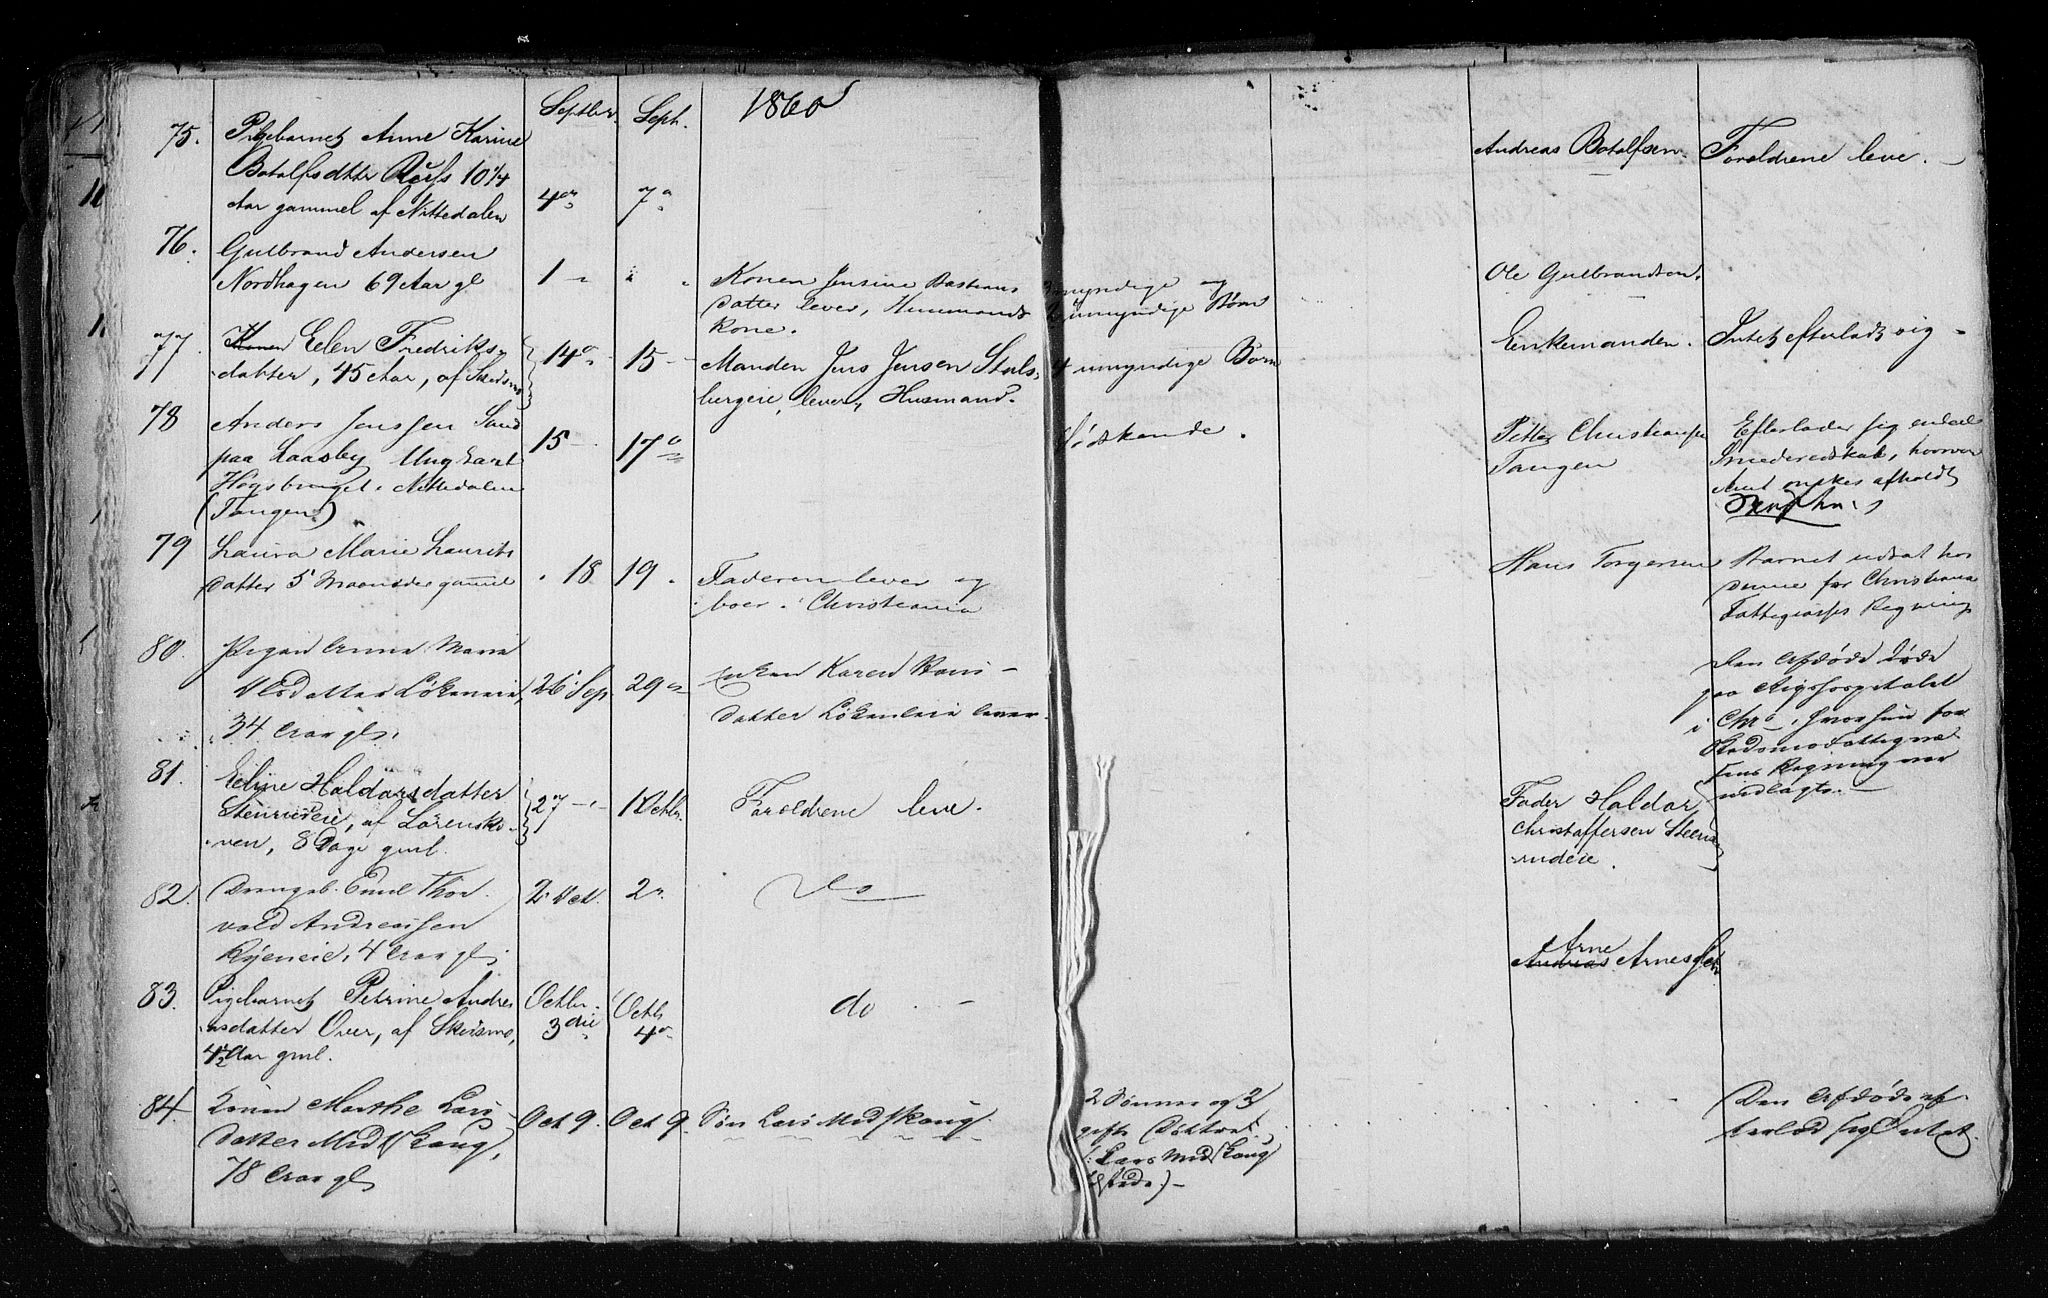 1860
Septbr. Septb.
75. Pigebarnet Anne Karine
Botolfsdatter 10 1/4
Aar gammel af Nittedalen
4de 7de
Andreas Botolfsen
Forældrene leve.
76. Gulbrand Andersen
Nordhagen 69 Aar gl
1 "
Konen Jensine Bastians
datter lever, Huusmands
kone.
myndige og
umyndige Børn
Ole Gulbrandsen.
77. Konen Elen Fredriks-
datter, 45 Aar, af Skedsmo
14de 15
Manden Jens Jensen Stuls-
bergeie, lever, Husmand.
4 umyndige Børn
Enkemanden.
Intet efterladt sig
78 Anders Jenssen
paa Laasby Ungkarl
Nittedalen
(Tangen)
15 17de
Sødskende.
Petter Christiansen
Tangen
Efterlader sig endeel
Smederedskab, hvorover
ønskes afholdt
79 Laura Marie Laurits
datter 5 Maaneder gammel
18 19
Faderen lever og
boer i Christiania
Hans Torgersen
Barnet udsat hos
denne for Christiania
Fattigcorpses Regning
80. Pigen Anna Maria
34 Aar gl.
26 Sep 29de
Karen Hans
datter lever
Den Afdøde døde
paa Rigshospitalet
i Chra, hvor hun for
Skedsmo Fattigvæ-
sens Regning var
indlagt.
81. Eline Haldorsdatter
Stenrudeie, af Lørensko-
ven, 8 Dage gml.
27 1 Octbr.
Forældrene leve.
Fader Haldor
Christoffersen Steen-
rudeie.
82. Drengeb. Emil Thor
vald Andreassen
Ryeneie, 4 Aar gl
2 Oct. 2
Do
83. Pigebarnet Petrine Andrea
Arnesdatter Over, af Skedsmo,
4 1/2 Aar gml.
Octbr. 3die
Octb 4de
do
Arne
Andreas Arnesen
84. Enken Marthe Lars
datter Midtskoug,
78 Aar gl
Oct 9. Oct 9
Søn Lars Midtskoug
2 Sønner og 3
gifte Døttre
(: Lars Midtskoug
Den Afdøde ef-
terlod sig Intet.